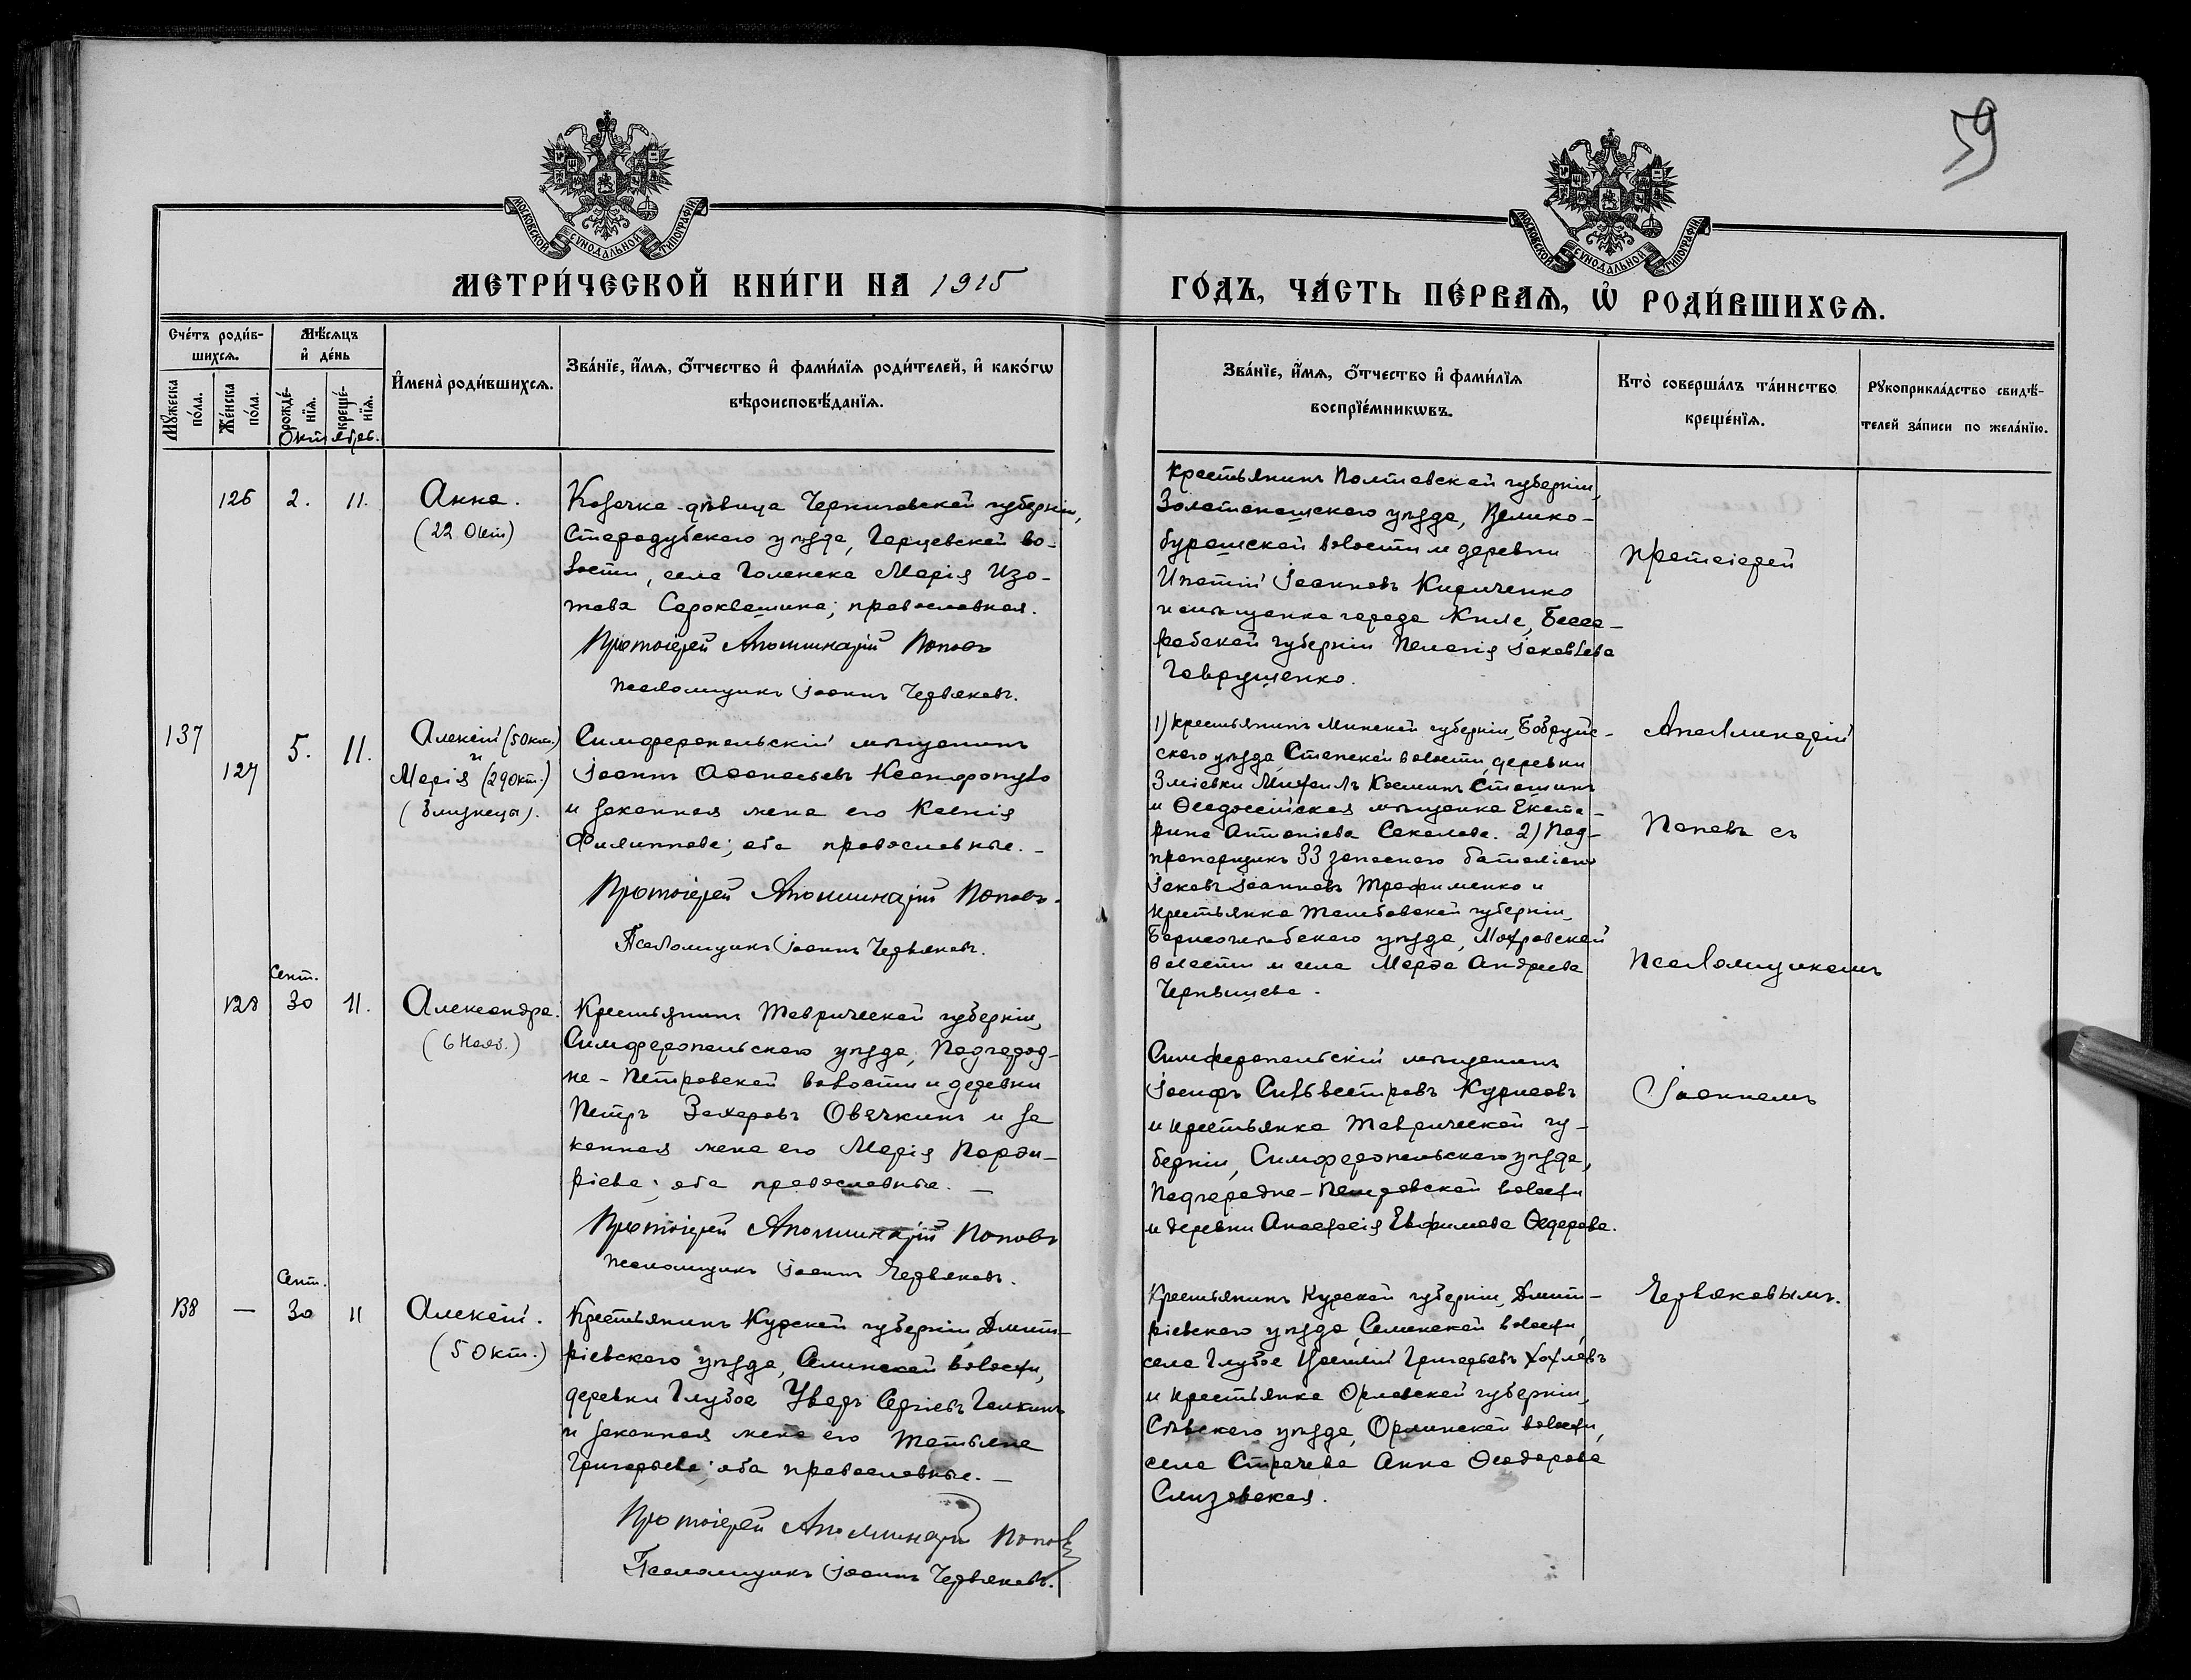 59
МОСКОВСКОЙ СѴНОДАЛЬНОЙ ТИПОГРАФІИ
МОСКОВСКОЙ СѴНОДАЛЬНОЙ ТИПОГРАФІИ
МЕТРИ́ЧЕСКОЙ КНИ́ГИ НА 1915
ГО́ДЪ, ЧА́СТЬ ПЕ́РВАѦ, Ѿ РОДИ́ВШИХСѦ.
Сче́тъ роди́в-
шихсѧ.
Мꙋ́жеска по́ла.
Же́нска по́ла.
Мѣ́сѧцъ
и҆ де́нь
рожде́-нїѧ.
креще́-нїѧ.
Октябрь.
И҆мена̀ роди́вшихсѧ.
Зва́нїе, и҆́мѧ, ѻ҆́тчество и҆ фами́лїѧ роди́телей, и҆ како́гѡ
вѣроисповѣ́данїѧ.
Зва́нїе, и҆́мѧ, ѻ҆́тчество и҆ фами́лїѧ
воспрїе́мникѡвъ.
Кто̀ соверша́лъ та́инство
креще́нїѧ.
Рꙋкоприкла́дство свидѣ́-
телей за́писи по жела́нїю.
126 2. 11.
Анна.
(22 Окт)
Козачка-дѣвица Черниговской губерніи,
Стародубскаго уѣзда, Гарцевской во-
лости, села Голенска Марія Изо-
това Сороквашина; православная.
Протоіерей Аполлинарій Поповъ
Псаломщикъ Іоаннъ Червяковъ.
Крестьянинъ Полтавской губерніи,
Золотоношскаго уѣзда, Велико-
буромской волости и деревни
Ипатій Іоанновъ Кириченко
и мѣщанка города Килія, Бесса-
рабской губерніи Пелагія Іаковлева
Гаврушенко.
137
127 5. 11.
Алексій (5 Окт.)
и
Марія (29 Окт.)
(близнецы).
Симферопольскій мѣщанинъ
Іоаннъ Аѳанасьевъ Ксанфопуло
и законная жена его Ксенія
Филиппова; оба православные. –
Протоіерей Аполлинарій Поповъ.
Псаломщикъ Іоаннъ Червяковъ.
1) Крестьянинъ Минской губерніи, Бобруйс-
скаго уѣзда, Степской волости, деревни
Зміевки Михаилъ Косминъ Сташинъ
и Ѳеодосійская мѣщанка Екате-
рина Антоніева Соколова. 2) Под-
прапорщикъ 33 запаснаго баталіона
Іаковъ Іоанновъ Трофименко и
крестьянка Тамбовской губерніи,
Борисоглѣбскаго уѣзда, Мохровской
волости и села Марѳа Андреева
Чернышева.
Сент.
128 30 11.
Александра.
(6 Нояб.)
Крестьянинъ Таврической губерніи,
Симферопольскаго уѣзда, Подгород-
не-Петровской волости и деревни
Петръ Захаровъ Овечкинъ и за
конная жена его Марія Порфи-
ріева; оба православные. –
Протоіерей Аполлинарій Поповъ
Псаломщикъ Іоаннъ Червяковъ.
Симферопольскій мѣщанинъ
Іосифъ Сильвестровъ Курисовъ
и крестьянка Таврической гу-
берніи, Симферопольскаго уѣзда,
Подгородне-Петровской волости
и деревни Анастасія Евфимова Ѳедорова.
Сент.
138 – 30 11
Алексій.
(5 Окт.)
Крестьянинъ Курской губерніи, Дмит-
ріевскаго уѣзда, Селинской волости,
деревни Глубое Уваръ Сергіевъ Галкинъ
и законная жена его Татьяна
Григорьева; оба православные. –
Протоіерей Аполлинарій Поповъ
Псаломщикъ Іоаннъ Червяковъ.
Крестьянинъ Курской губерніи, Дмит-
ріевскаго уѣзда, Селинской волости,
села Глубое Григорьевъ Хохловъ
и крестьянка Орловской губерніи,
Сѣвскаго уѣзда, Орлинской волости,
села Страчева Анна Ѳеодорова
Слизовская.
Протоіерей
Аполлинарій
Поповъ съ
Псаломщикомъ
Іоанномъ
Червяковымъ.